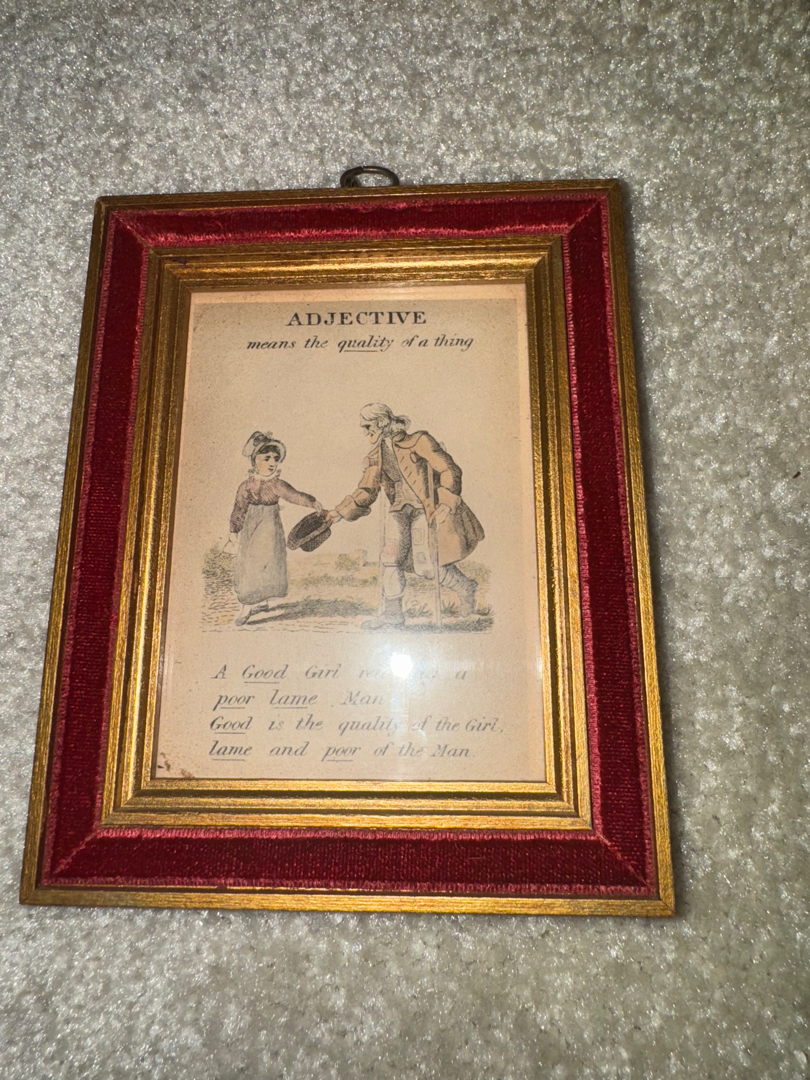 ADJECTIVE
means the quality of a thing
A Good Girl a
poor lame Man
Good is the quality of the Girl,
lame and poor of the Man.